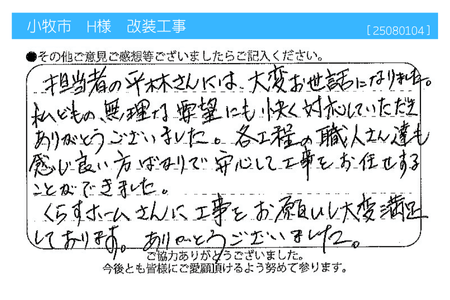 小牧市　H様　改装工事
[25080104]
●その他ご意見ご感想等ございましたらご記入ください。
担当者の平林さんには、大変お世話になりました。
私どもの無理な要望にも快く対応していただき
ありがとうございました。各工程の職人さん達も
感じ良い方ばかりで安心して工事をお任せする
ことができました。
くらすホームさんに工事をお願いし大変満足
しております。ありがとうございました。
ご協力ありがとうございました。
今後とも皆様にご愛顧頂けるよう努めて参ります。